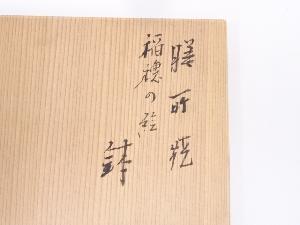 膳所焼
稲穂の絵
鉢